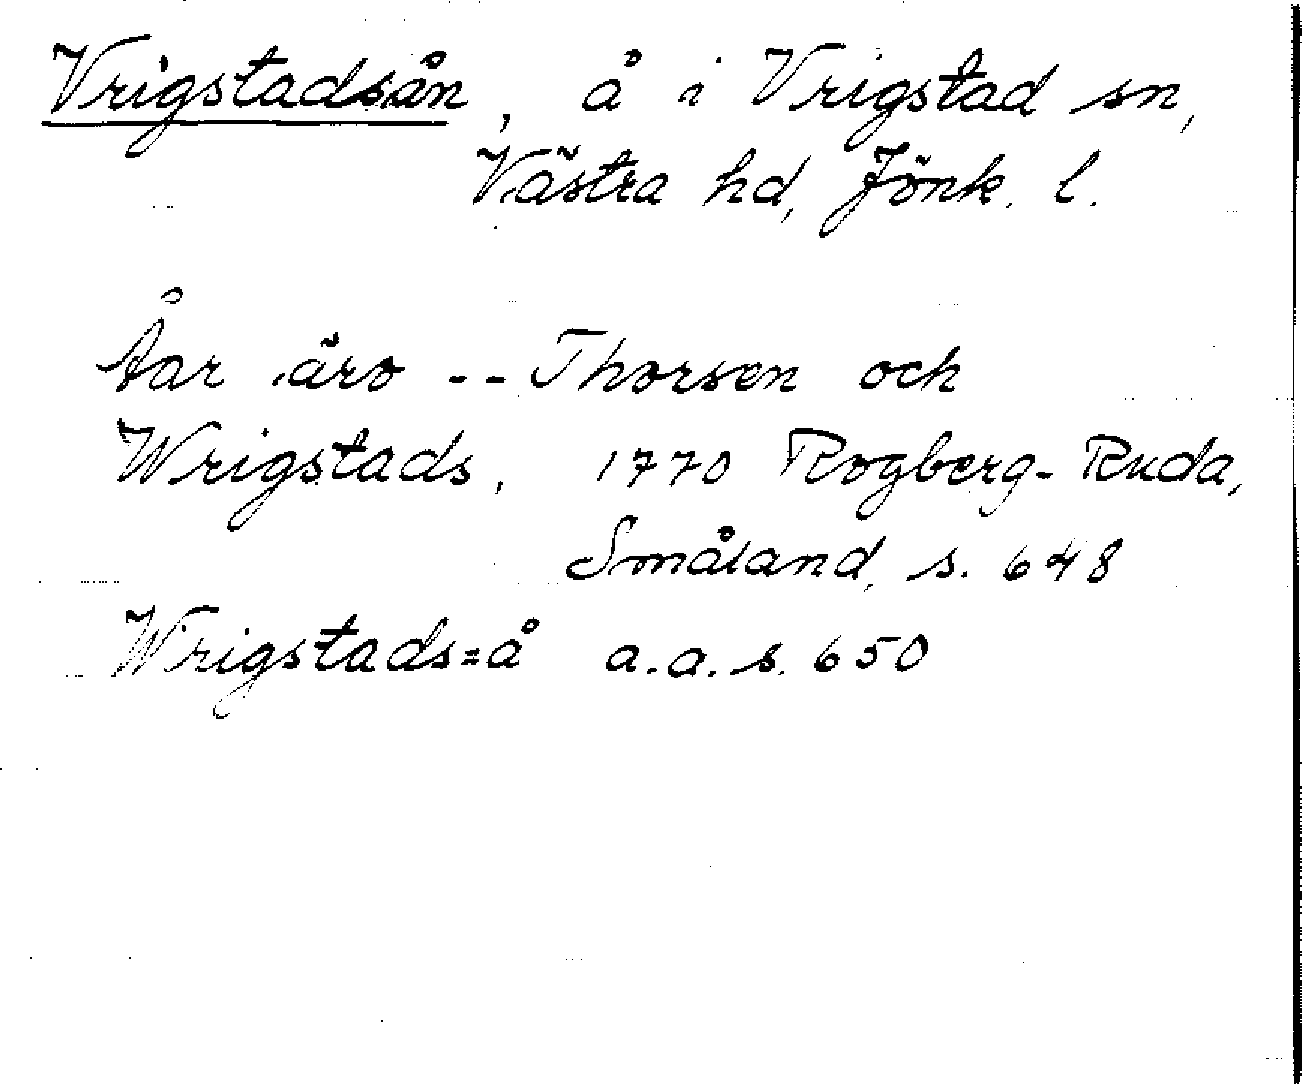 Vrigstadsån, å i Vrigstad sn,
Västra hd, Jönk. l.
Åar äro -- Thorsen och
Wrigstads, 1770 Rogberg-Ruda,
Småland, s. 648
Wrigstads=å a.a. s. 650